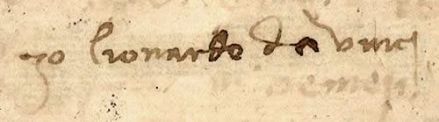 Jo lionardo da vinci